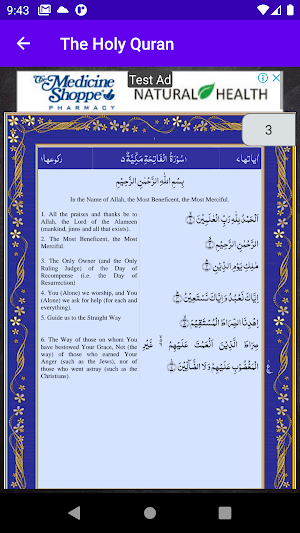 9:43
The Holy Quran
The Medicine Shoppe PHARMACY
Test Ad
NATURAL HEALTH
3
اٰیاتھا ٧ ١ سُوْرَةُ الْفَاتِحَةِ مَكِّيَّةٌ ٥ رکوعھا ١
بِسْمِ اللّٰهِ الرَّحْمٰنِ الرَّحِيْمِ
In the Name of Allah, the Most Beneficent, the Most Merciful.
1. All the praises and thanks be to
Allah, the Lord of the Alameen
(mankind, jinns and all that exists).
اَلْحَمْدُ لِلّٰهِ رَبِّ الْعٰلَمِيْنَ
2. The Most Beneficent, the Most
Merciful.
الرَّحْمٰنِ الرَّحِيْمِ
3. The Only Owner (and the Only
Ruling Judge) of the Day of
Recompense (i.e. the Day of
Resurrection)
مٰلِكِ يَوْمِ الدِّيْنِ
4. You (Alone) we worship, and You
(Alone) we ask for help (for each and
everything).
اِيَّاكَ نَعْبُدُ وَاِيَّاكَ نَسْتَعِيْنُ
5. Guide us to the Straight Way
اِهْدِنَا الصِّرَاطَ الْمُسْتَقِيْمَ
6. The Way of those on whom You
have bestowed Your Grace, Not (the
way) of those who earned Your
Anger (such as the Jews), nor of
those who went astray (such as the
Christians).
صِرَاطَ الَّذِيْنَ اَنْعَمْتَ عَلَيْهِمْ غَيْرِ
الْمَغْضُوْبِ عَلَيْهِمْ وَلَا الضَّآلِّيْنَ